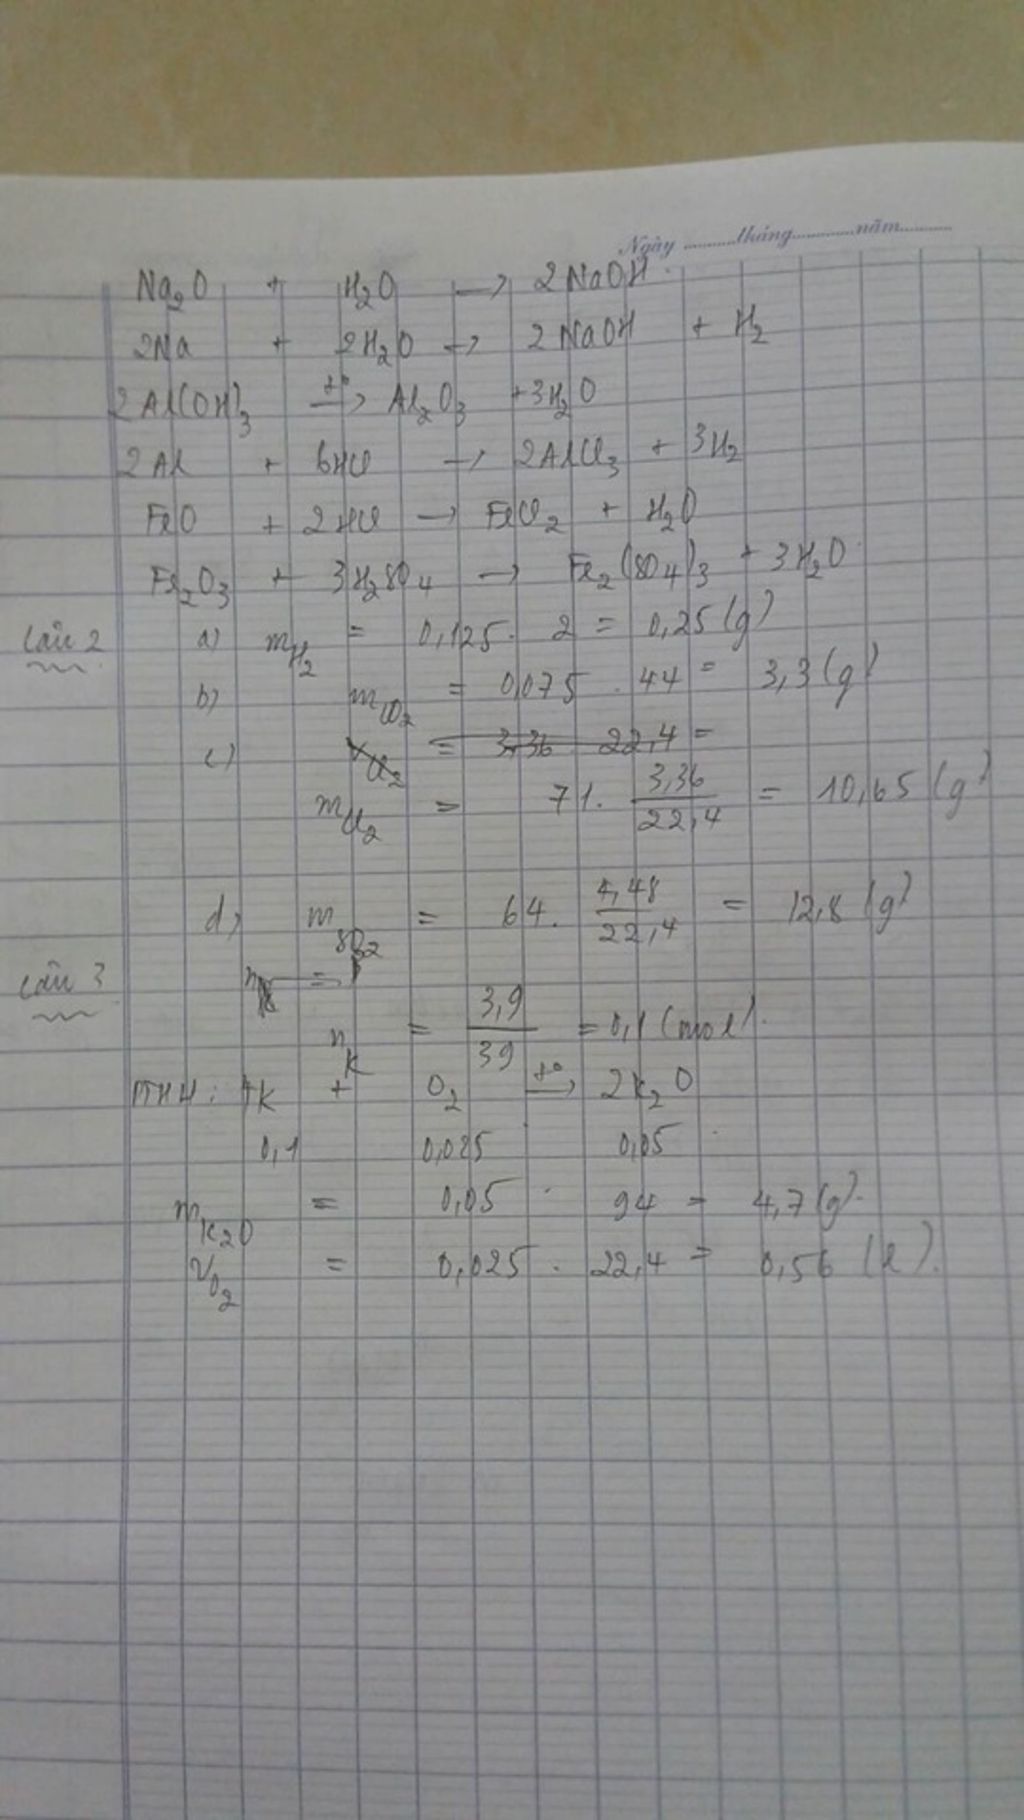 Ngày ............tháng............năm............
Na₂O + H₂O → 2NaOH.
2Na + 2H₂O → 2NaOH + H₂
2Al(OH)₃ t°→ Al₂O₃ + 3H₂O
2Al + 6HCl → 2AlCl₃ + 3H₂
FeO + 2HCl → FeCl₂ + H₂O
Fe₂O₃ + 3H₂SO₄ → Fe₂(SO₄)₃ + 3H₂O
Câu 2 a) m H₂ = 0,125. 2 = 0,25 (g)
b) m CO₂ = 0,075 . 44 = 3,3 (g)
c) V Cl₂ = 3,36 22,4 =
m Cl₂ = 71. 3,36/22,4 = 10,65 (g)
d) m SO₂ = 64. 4,48/22,4 = 12,8 (g)
Câu 3
n K = 3,9/39 = 0,1 (mol).
PTHH: 4K + O₂ t°→ 2K₂O
0,1 0,025 0,05
m K₂O = 0,05 . 94 = 4,7 (g).
V O₂ = 0,025 . 22,4 = 0,56 (l).